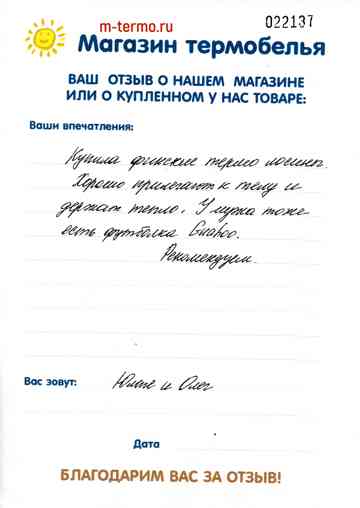 m-termo.ru
022137
Магазин термобелья
ВАШ ОТЗЫВ О НАШЕМ МАГАЗИНЕ
ИЛИ О КУПЛЕННОМ У НАС ТОВАРЕ:
Ваши впечатления:
Купила финские термо лосины.
Хорошо прилегают к телу и
держат тепло. У мужа тоже
есть футболка Guahoo.
Рекомендуем.
Вас зовут: и Олег
Дата
БЛАГОДАРИМ ВАС ЗА ОТЗЫВ!